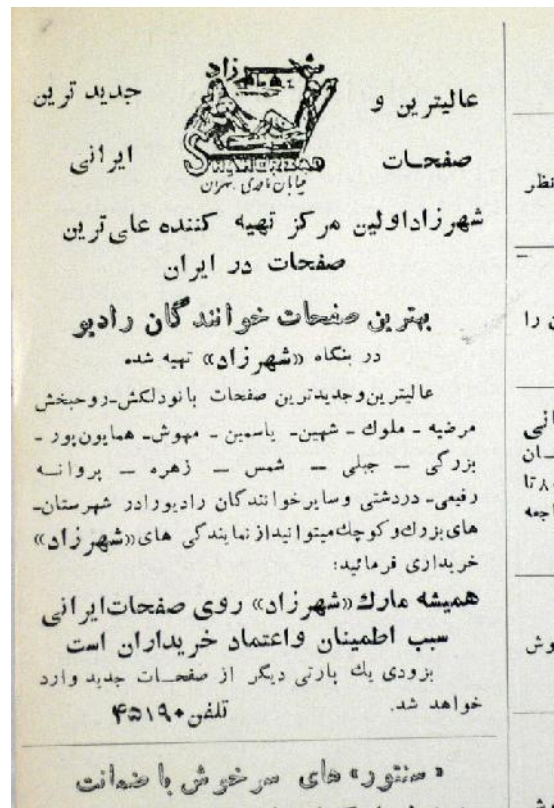 عالیترین و جدید ترین
شهرزاد
صفحات ایرانی
SHAHRZAD
خیابان نادری تهران
شهرزاد اولین مرکز تهیه کننده عالی ترین
صفحات در ایران
بهترین صفحات خوانندگان رادیو
در بنگاه «شهرزاد» تهیه شده
عالیترین وجدیدترین صفحات بانودلکش-روحبخش
مرضیه - ملوك - شهین- یاسمین - مهوش- همایون پور -
بزرگی - جبلی - شمس - زهره - پروانه
رفیعی- دردشتی وسایرخوانندگان رادیورادر شهرستان-
های بزرك وکوچك میتوانیداز نمایندگی های «شهرزاد»
خریداری فرمائید:
همیشه مارك «شهرزاد» روی صفحات ایرانی
سبب اطمینان واعتماد خریداران است
بزودی یك پارتی دیگر از صفحات جدید وارد
خواهد شد. تلفن
«سنتور» های سرخوش با ضمانت
نظر
را
تا